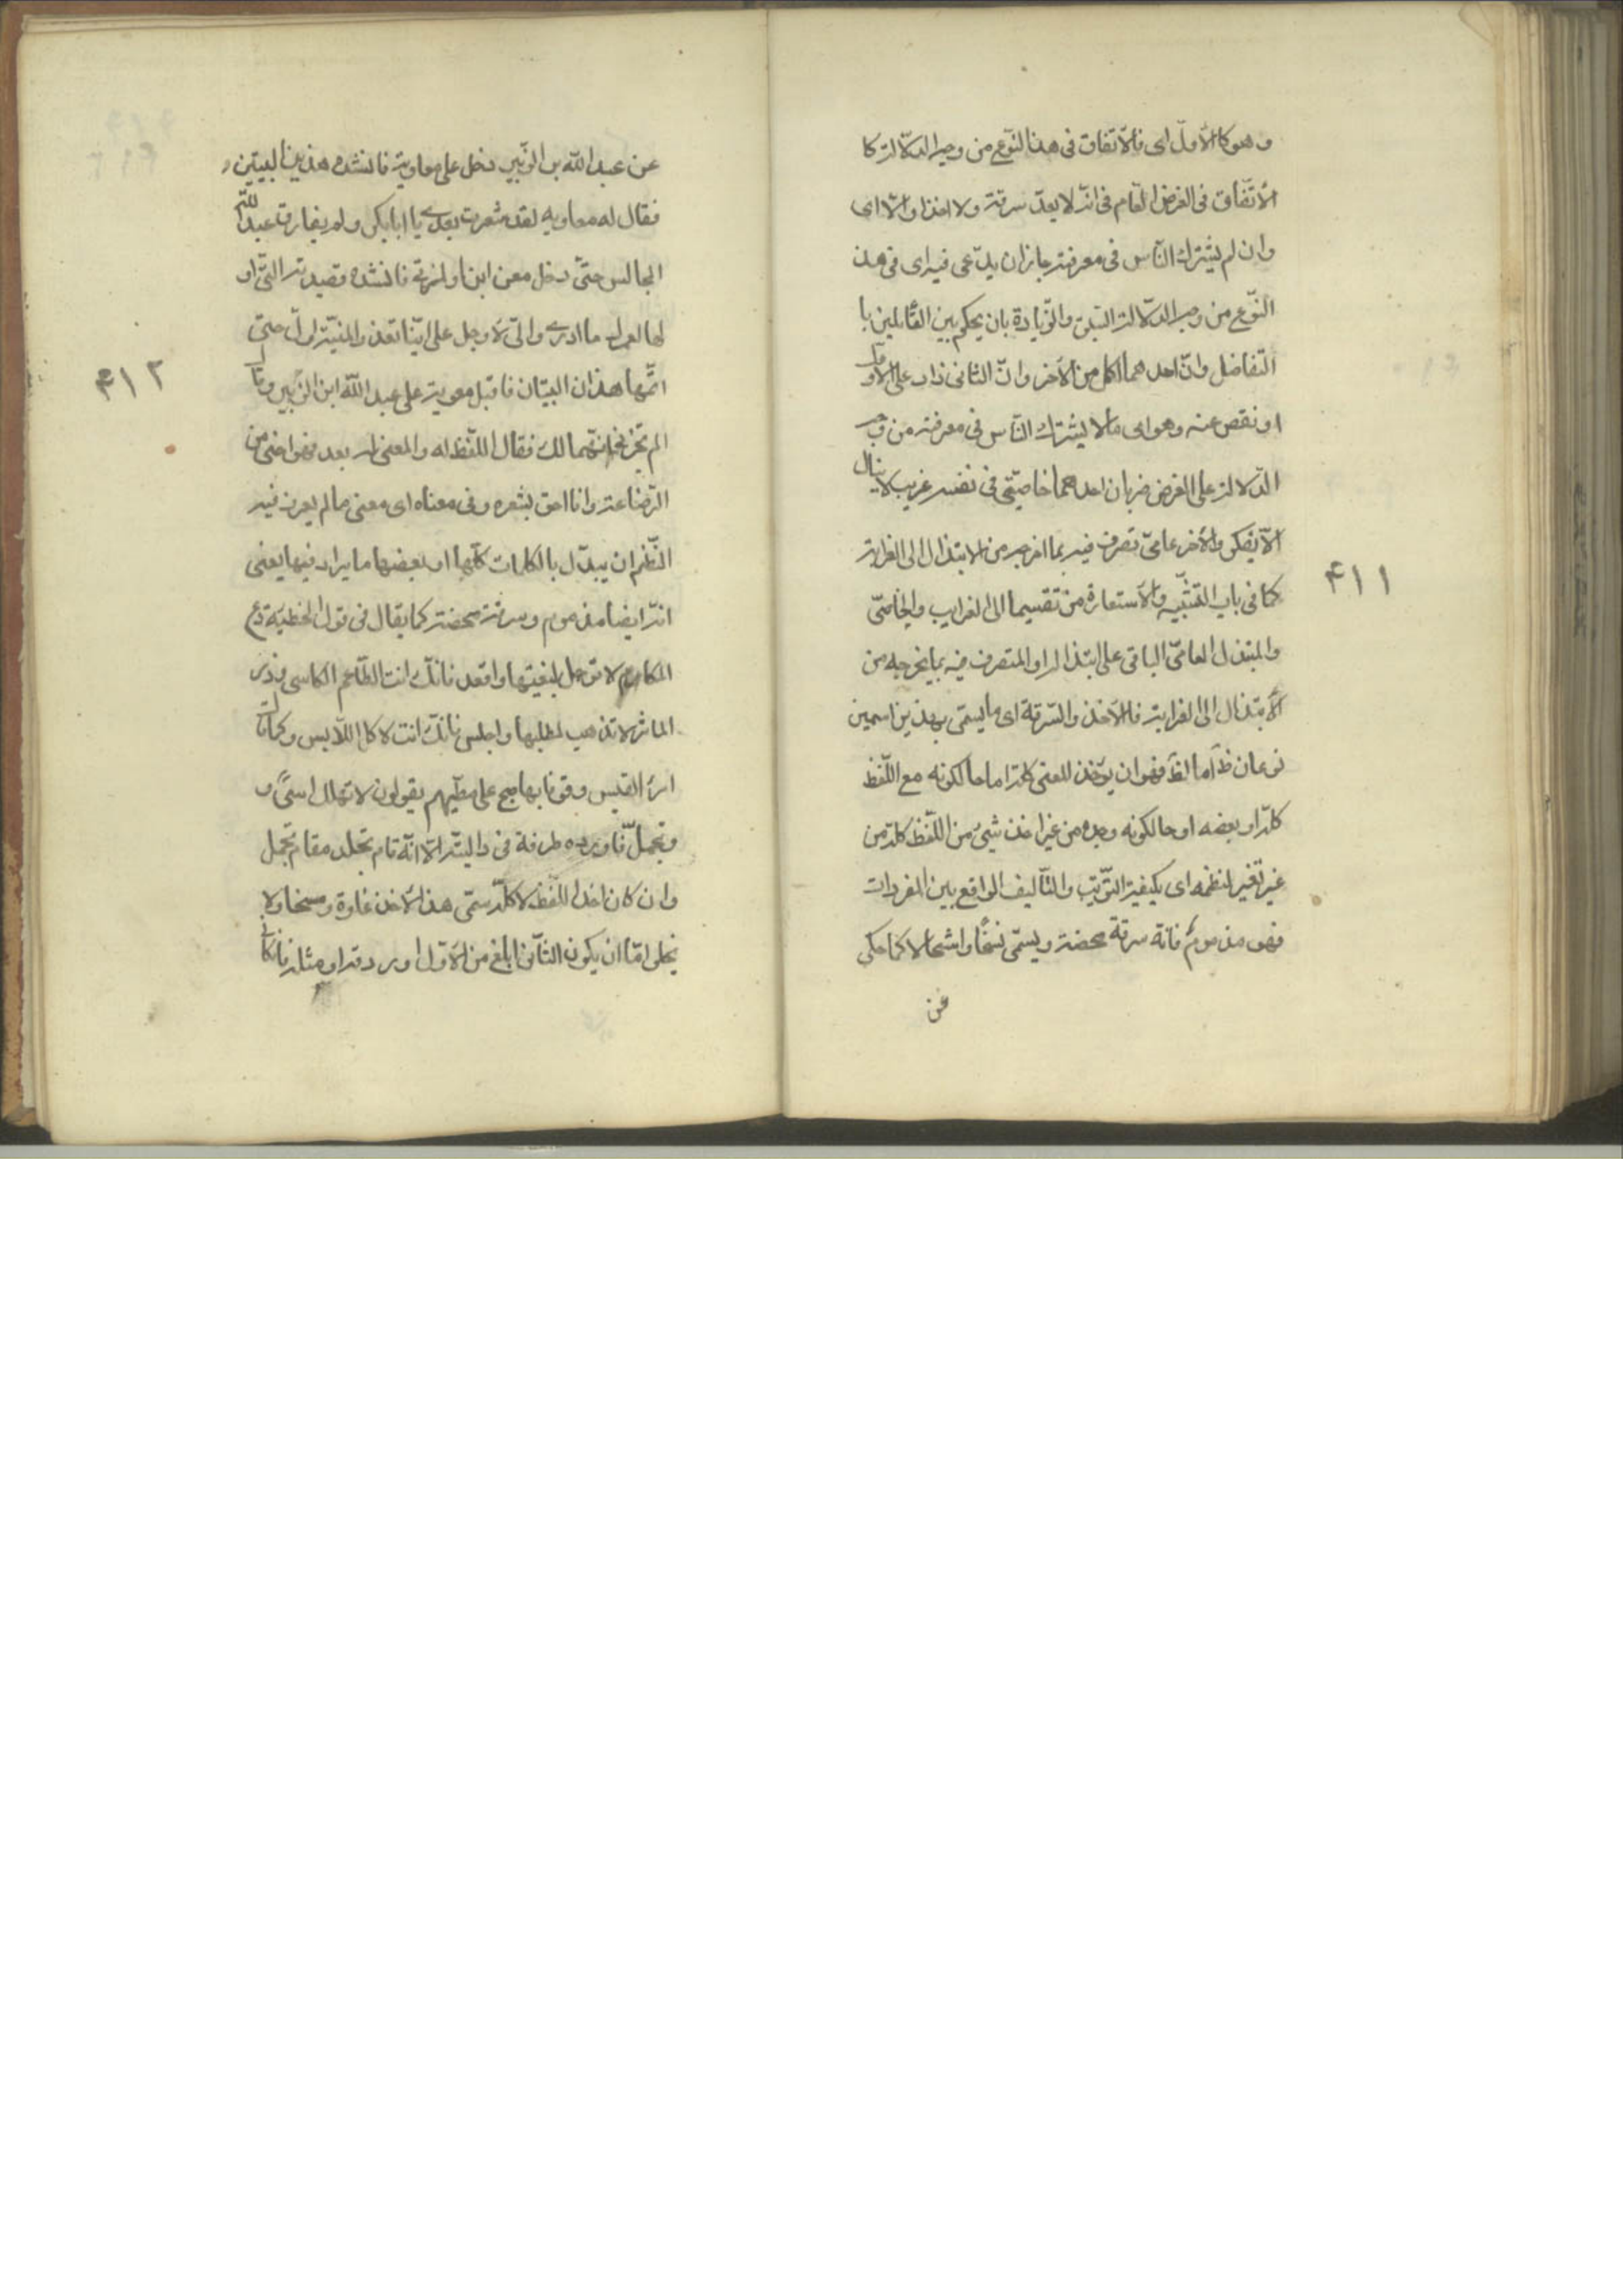 وهو كالاوّل اى فالاتّفاق فى هذا النّوع من وجه الدّلالة كا
لاتّفاق فى الغرض العام فى انّه لا يعدّ سرقة ولا اخذا والّا اى
وان لم يشترك النّاس فى معرفته جاز ان يدّعى فيه اى فى هذ
النّوع من وجه الدّلالة السّبق والزّيادة بان يحكم بين القائلين با
لتّفاضل وانّ احدهما اكمل من الآخر وانّ الثانى زاد على الاوّل
او نقص عنه وهو اى ما لا يشترك النّاس فى معرفته من وجه
الدّلالة على الغرض ضربان احدهما خاصّىّ فى نفسه غريب لا ينال
الّا بفكر والآخر عامىّ تصرّف فيه بما اخرجه من الابتذال الى الغرابة
كما فى باب التّشبيه والاستعارة من تقسيمها الى الغريب والخاصّى
والمبتذل العامّىّ الباقى على ابتذاله او المتصرف فيه بما يخرجه من
الابتذال الى الغرابة فالاخذ والسّرقة اى ما يسمّى بهذين اسمين
نوعان ظ اما الظ فهو ان يؤخذ المعنى كلّه اما حالكونه مع اللّفظ
كلّه او بعضه او حالكونه وحده من غير اخذ شىء من اللّفظ كلّه من
غير تغير لنظمه اى بكيفيّة التّرتيب والتّأليف الواقع بين المفردات
فهو مذموم فانّه سرقة محضة ويسمّى نسخًا وانتحالا كما حكى
عن
۴۱۱
عن عبد الله بن الزّبير دخل على معاوية فانشده هذين البيتين و
فقال له معاويه لقد شعرت بعدى يا ابا بكر ولم يفارق عبد الله
المجالس حتّى دخل معن ابن اولزنى فانشده قصيدته التّى او
لها لعمرك ما ادرى وانّى لاوجل على ايّنا تعدو المنيّة اوّل حتى
اتمّها هذان البيتان فاقبل معوية على عبد الله ابن الزّبير وقال
الم تخبرنى انّهما لك فقال اللّفظ له والمعنى لى بعد فهو اخى من
الرّضاعة وانا احق بشعره وفى معناه اى معنى ما لم يعرف فيه
النّظم ان يبدّل بالكلمات كلّها او بعضها ما يرادفها يعنى
انّه ايضا مذموم وسرقة محضة كما يقال فى قول الحطيئة دع
المكارم لا ترحل لبغيتها واقعد فانّك انت الطّاعم الكاسى وذر
الماثر لا تذهب لمطلبها واجلس فانّك انت لاكل اللّابس وكما قال
امرئ القيس وقوفا بها صحبى على مطيّهم يقولون لا تهلك اسىً و
وتجمّل فاورده طرفة فى داليته الّا انّه قام تجلد مقام تجمل
وان كان اخذ اللّفظ لا كلّه سمّى هذا الاخذ غارة ومسخا ولا
يخلو امّا ان يكون الثّانى ابلغ من الاوّل او دونه او مثله فان كان
۴۱۲